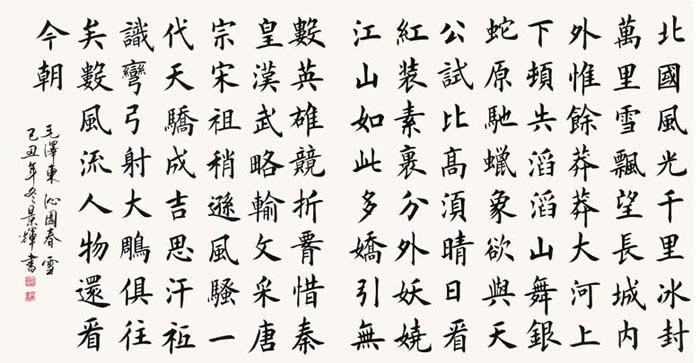 北國風光千里冰封
萬里雪飄望長城内
外惟餘莽莽大河上
下頓失滔滔山舞銀
蛇原馳蠟象欲與天
公試比高須晴日看
紅裝素裹分外妖嬈
江山如此多嬌引無
數英雄競折腰惜秦
皇漢武略輸文采唐
宗宋祖稍遜風騷一
代天驕成吉思汗祇
識彎弓射大鵰俱往
矣數風流人物還看
今朝
毛澤東 沁園春 雪
己丑年冬景輝書